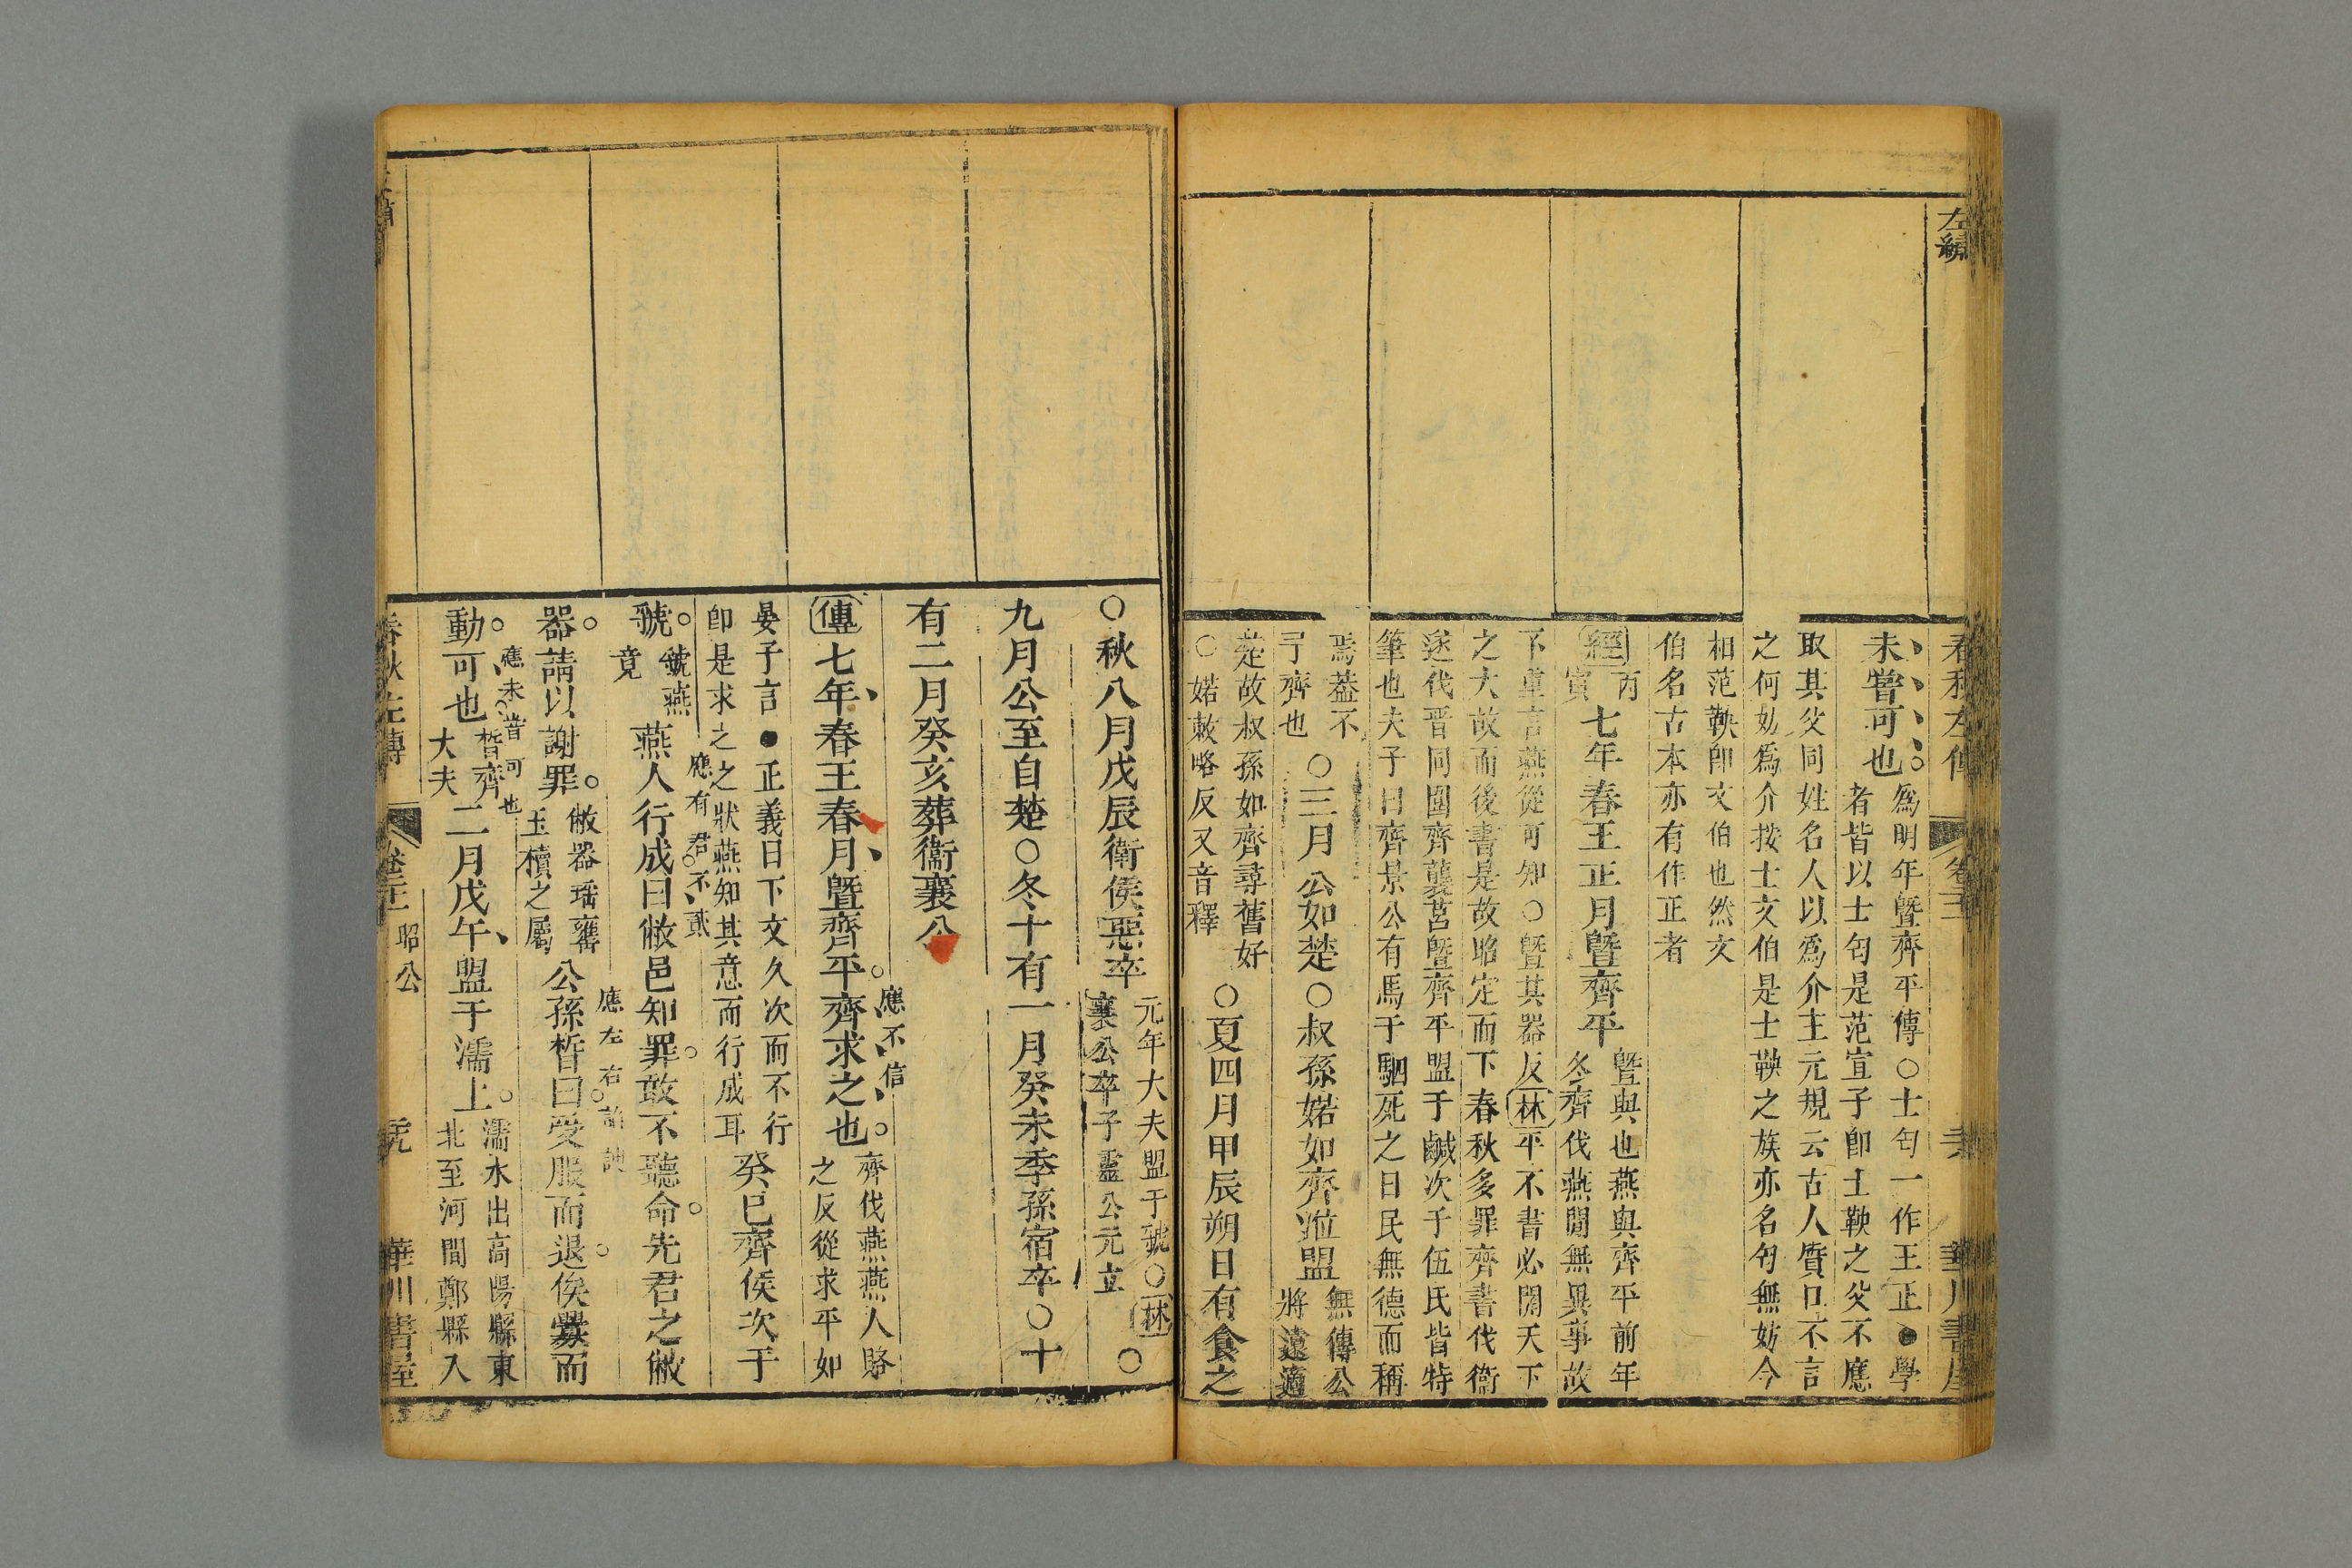 左繡
春秋左傳
華川書屋
未嘗可也
爲明年曁齊平傳○士匄一作王正●學
者皆以士匄是范宣子卽士鞅之父不應
取其父同姓名人以爲介主元規云古人質口不言
之何妨爲介按士文伯是士鞅之族亦名匄無妨今
相范鞅卽文伯也然文
伯名古本亦有作正者
經
丙
寅
七年春王正月曁齊平
曁與也燕與齊平前年
冬齊伐燕間無異事故
下重言燕從可知○曁其器反林平不書必關天下
之大故而後書是故昭定而下春秋多罪齊書伐衞
遂伐晉同圍齊襲莒曁齊平盟于鹹次于伍氏皆特
筆也夫子曰齊景公有馬千駟死之日民無德而稱
焉葢不
亐齊也
○三月公如楚○叔孫婼如齊涖盟
無傳公
將遠適
楚故叔孫如齊尋舊好
○婼敕略反又音釋
○夏四月甲辰朔日有食之
○秋八月戊辰衛侯惡卒
元年大夫盟于虢○林
襄公卒子靈公元立
○
九月公至自楚○冬十有一月癸未季孫宿卒○十
有二月癸亥葬衞襄公
傳七年春王春月曁齊平齊求之也
應不信
齊伐燕燕人賂
之反從求平如
晏子言●正義曰下文久次而不行
卽是求之之狀燕知其意而行成耳
癸巳齊侯次于
虢
虢燕
竟
燕人行成曰敝邑知罪敢不聽命先君之敝
應有君不貳
器請以謝罪
敝器瑤罋
玉櫝之屬
公孫晳曰受服而退俟釁而
應左右諂諛
動可也
應未嘗可也
晳齊
大夫
二月戊午盟于濡上
濡水出高陽縣東
北至河間鄭縣入
春秋左傳
昭公
華川書屋